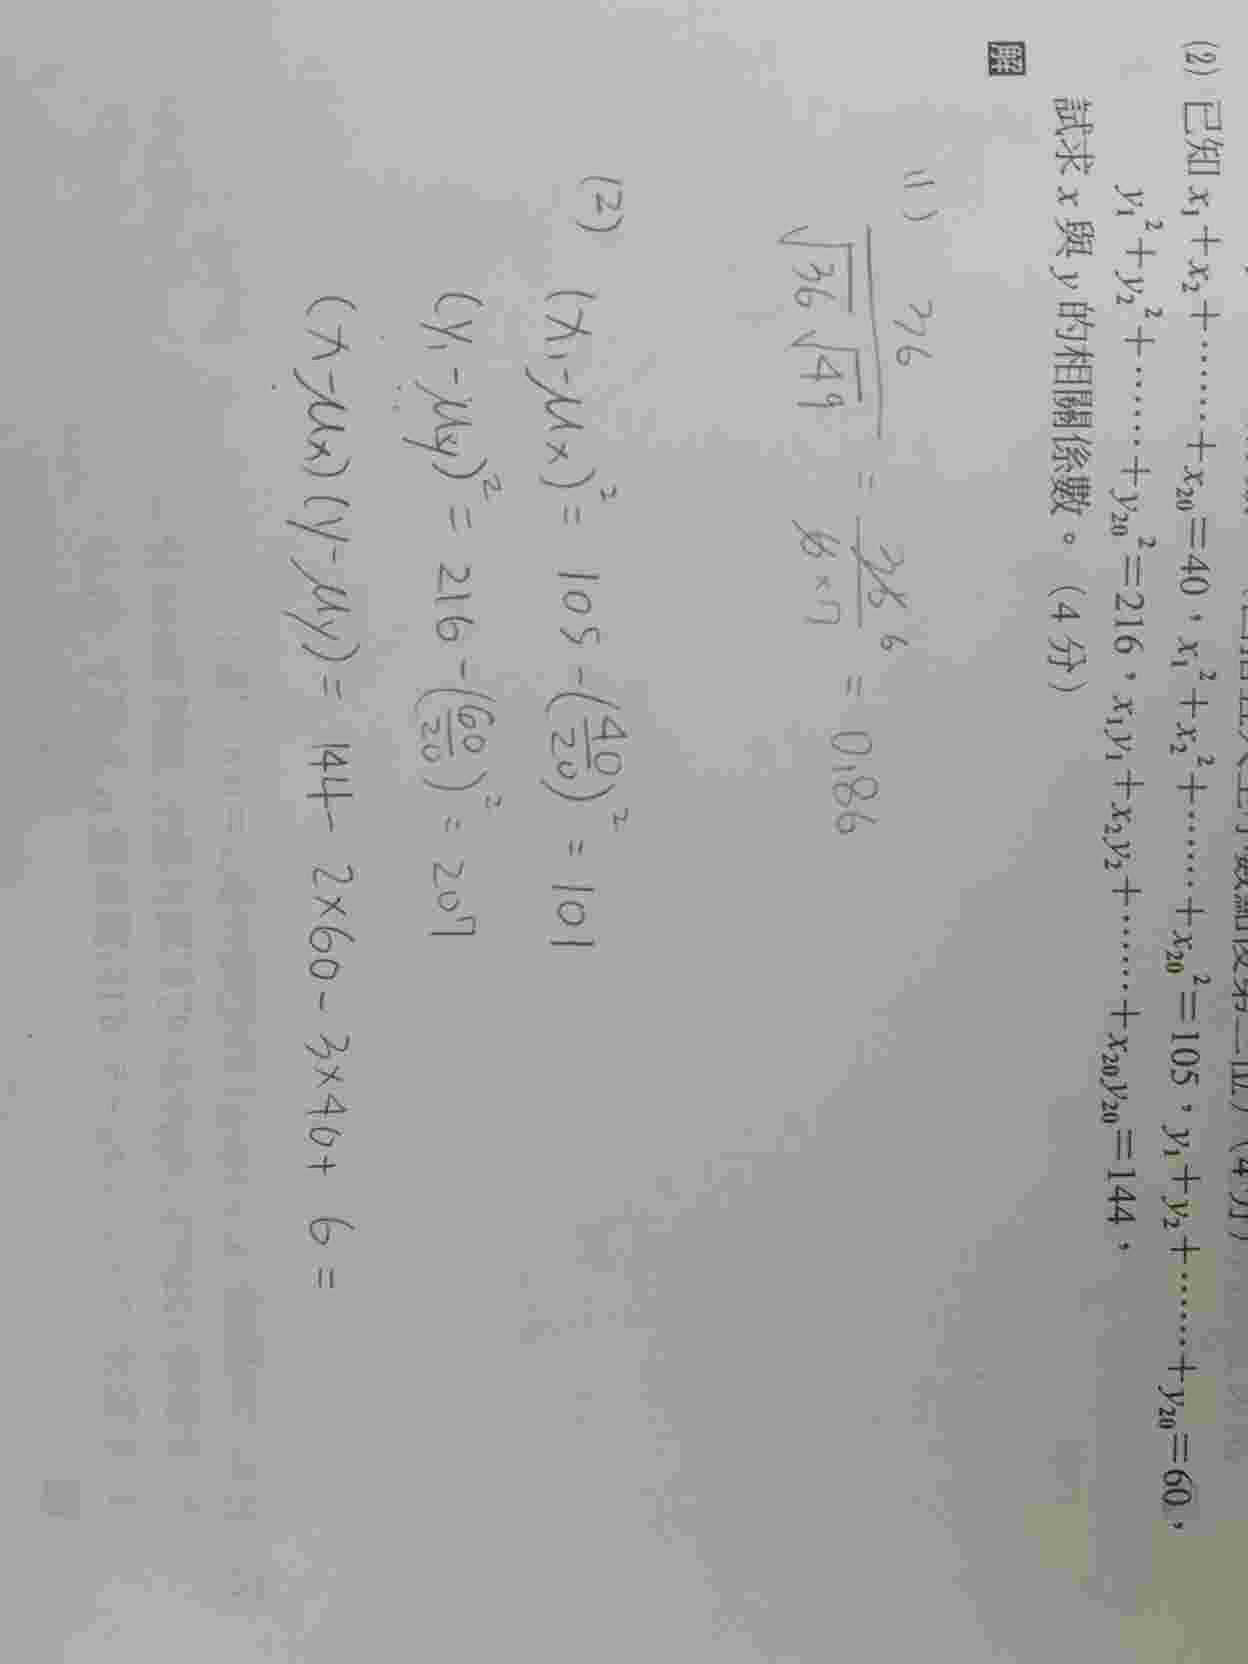 (4分)
(2) 已知 x₁+x₂+……+x₂₀=40,x₁²+x₂²+……+x₂₀²=105,y₁+y₂+……+y₂₀=60,
y₁²+y₂²+……+y₂₀²=216,x₁y₁+x₂y₂+……+x₂₀y₂₀=144,
試求 x 與 y 的相關係數。(4 分)
解
(1) 36/(√36 √49) = 36 6/(6×7) = 0.86
(2) (x₁-μx)² = 105-(40/20)² = 101
(y₁-μy)² = 216-(60/20)² = 207
(x-μx)(y-μy) = 144-2×60-3×40+6=